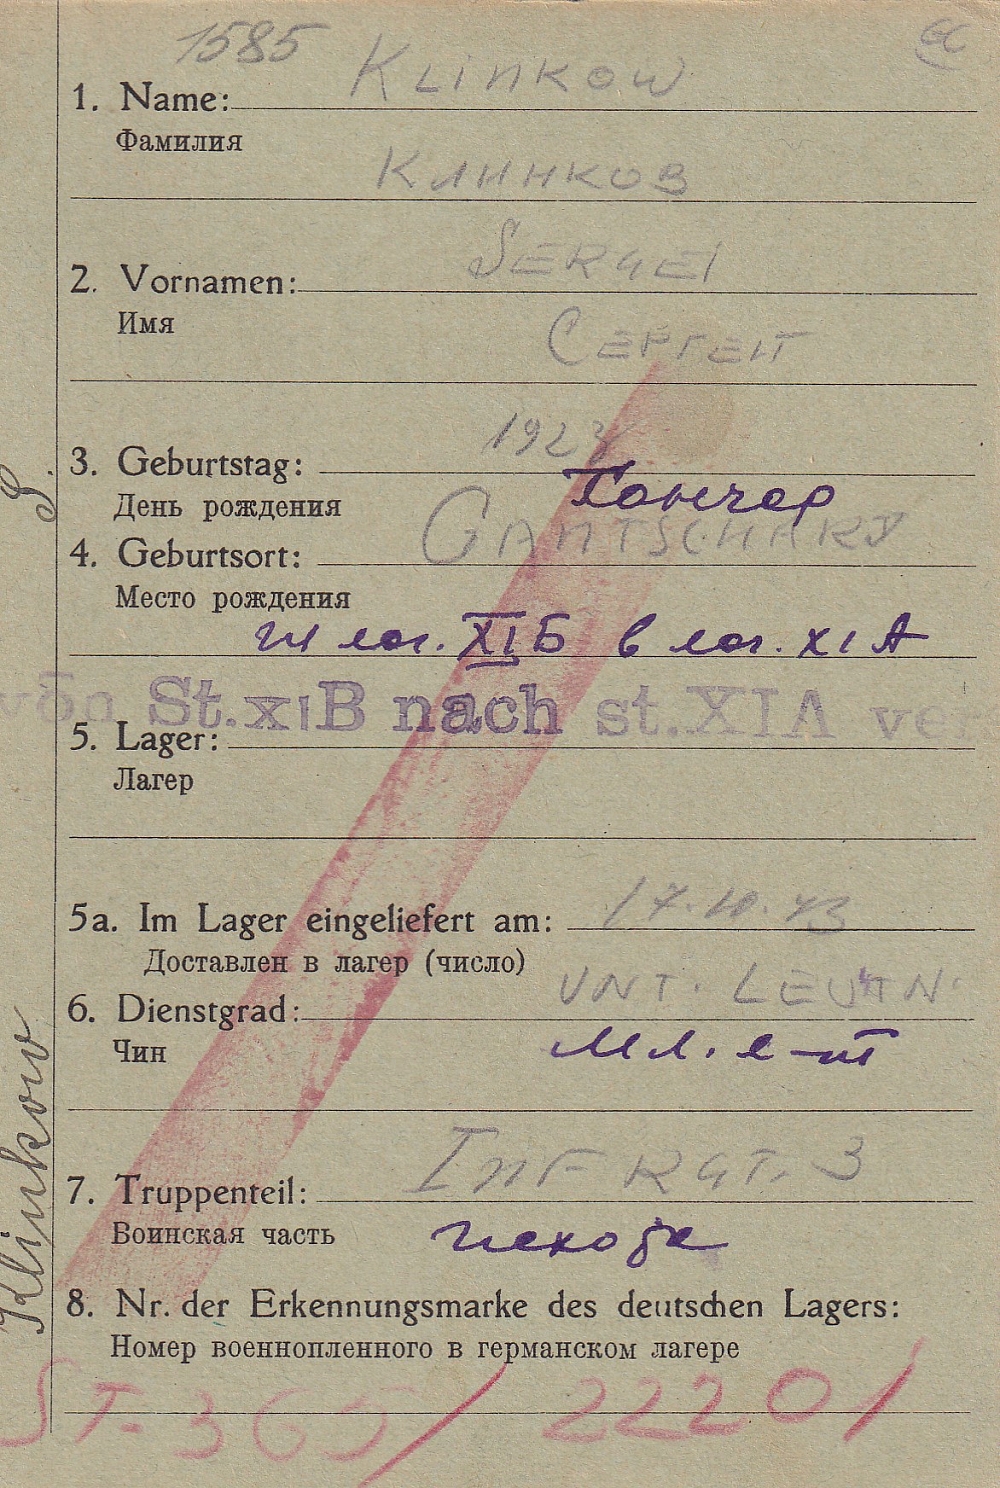 1585 Klinkow
1. Name:
Фамилия
Клинков
2. Vornamen: Sergei
Имя
Сергей
3. Geburtstag: 192
День рождения Гончар
4. Geburtsort: Gantschary
Место рождения
лаг. XI Б в лаг. XI A
von St. XI B nach st. XI A ve
5. Lager:
Лагер
5a. Im Lager eingeliefert am: 17.10.43
Доставлен в лагер (число)
6. Dienstgrad: Unt. Leutn.
Чин мл. л-т
7. Truppenteil: Inf Rgt. 3
Воинская часть пехота
8. Nr. der Erkennungsmarke des deutschen Lagers:
Номер военнопленного в германском лагере
St-365/2220/
Klinkow S.